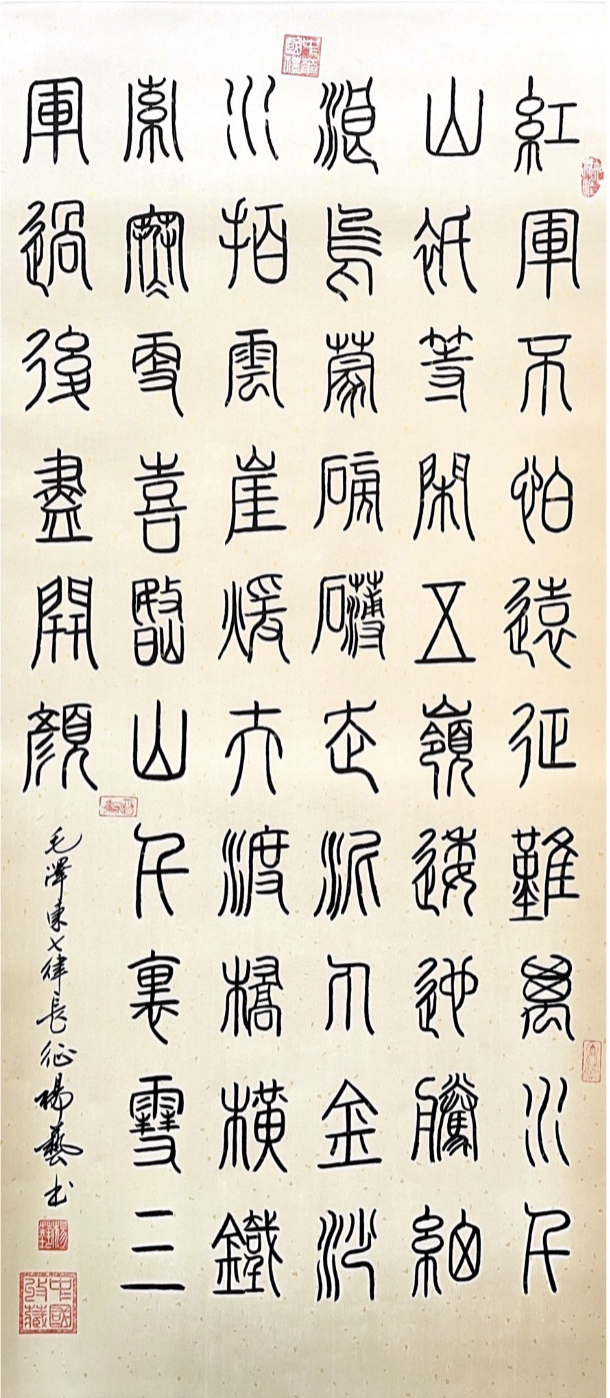 紅軍不怕遠征難萬水千
山祇等閑五嶺逶迤騰細
浪烏蒙磅礴走泥丸金沙
水拍雲崖煖大渡橋橫鐵
索寒更喜岷山千裏雪三
軍過後盡開顏
毛澤東七律長征楊藝书
楊藝
中國收藏